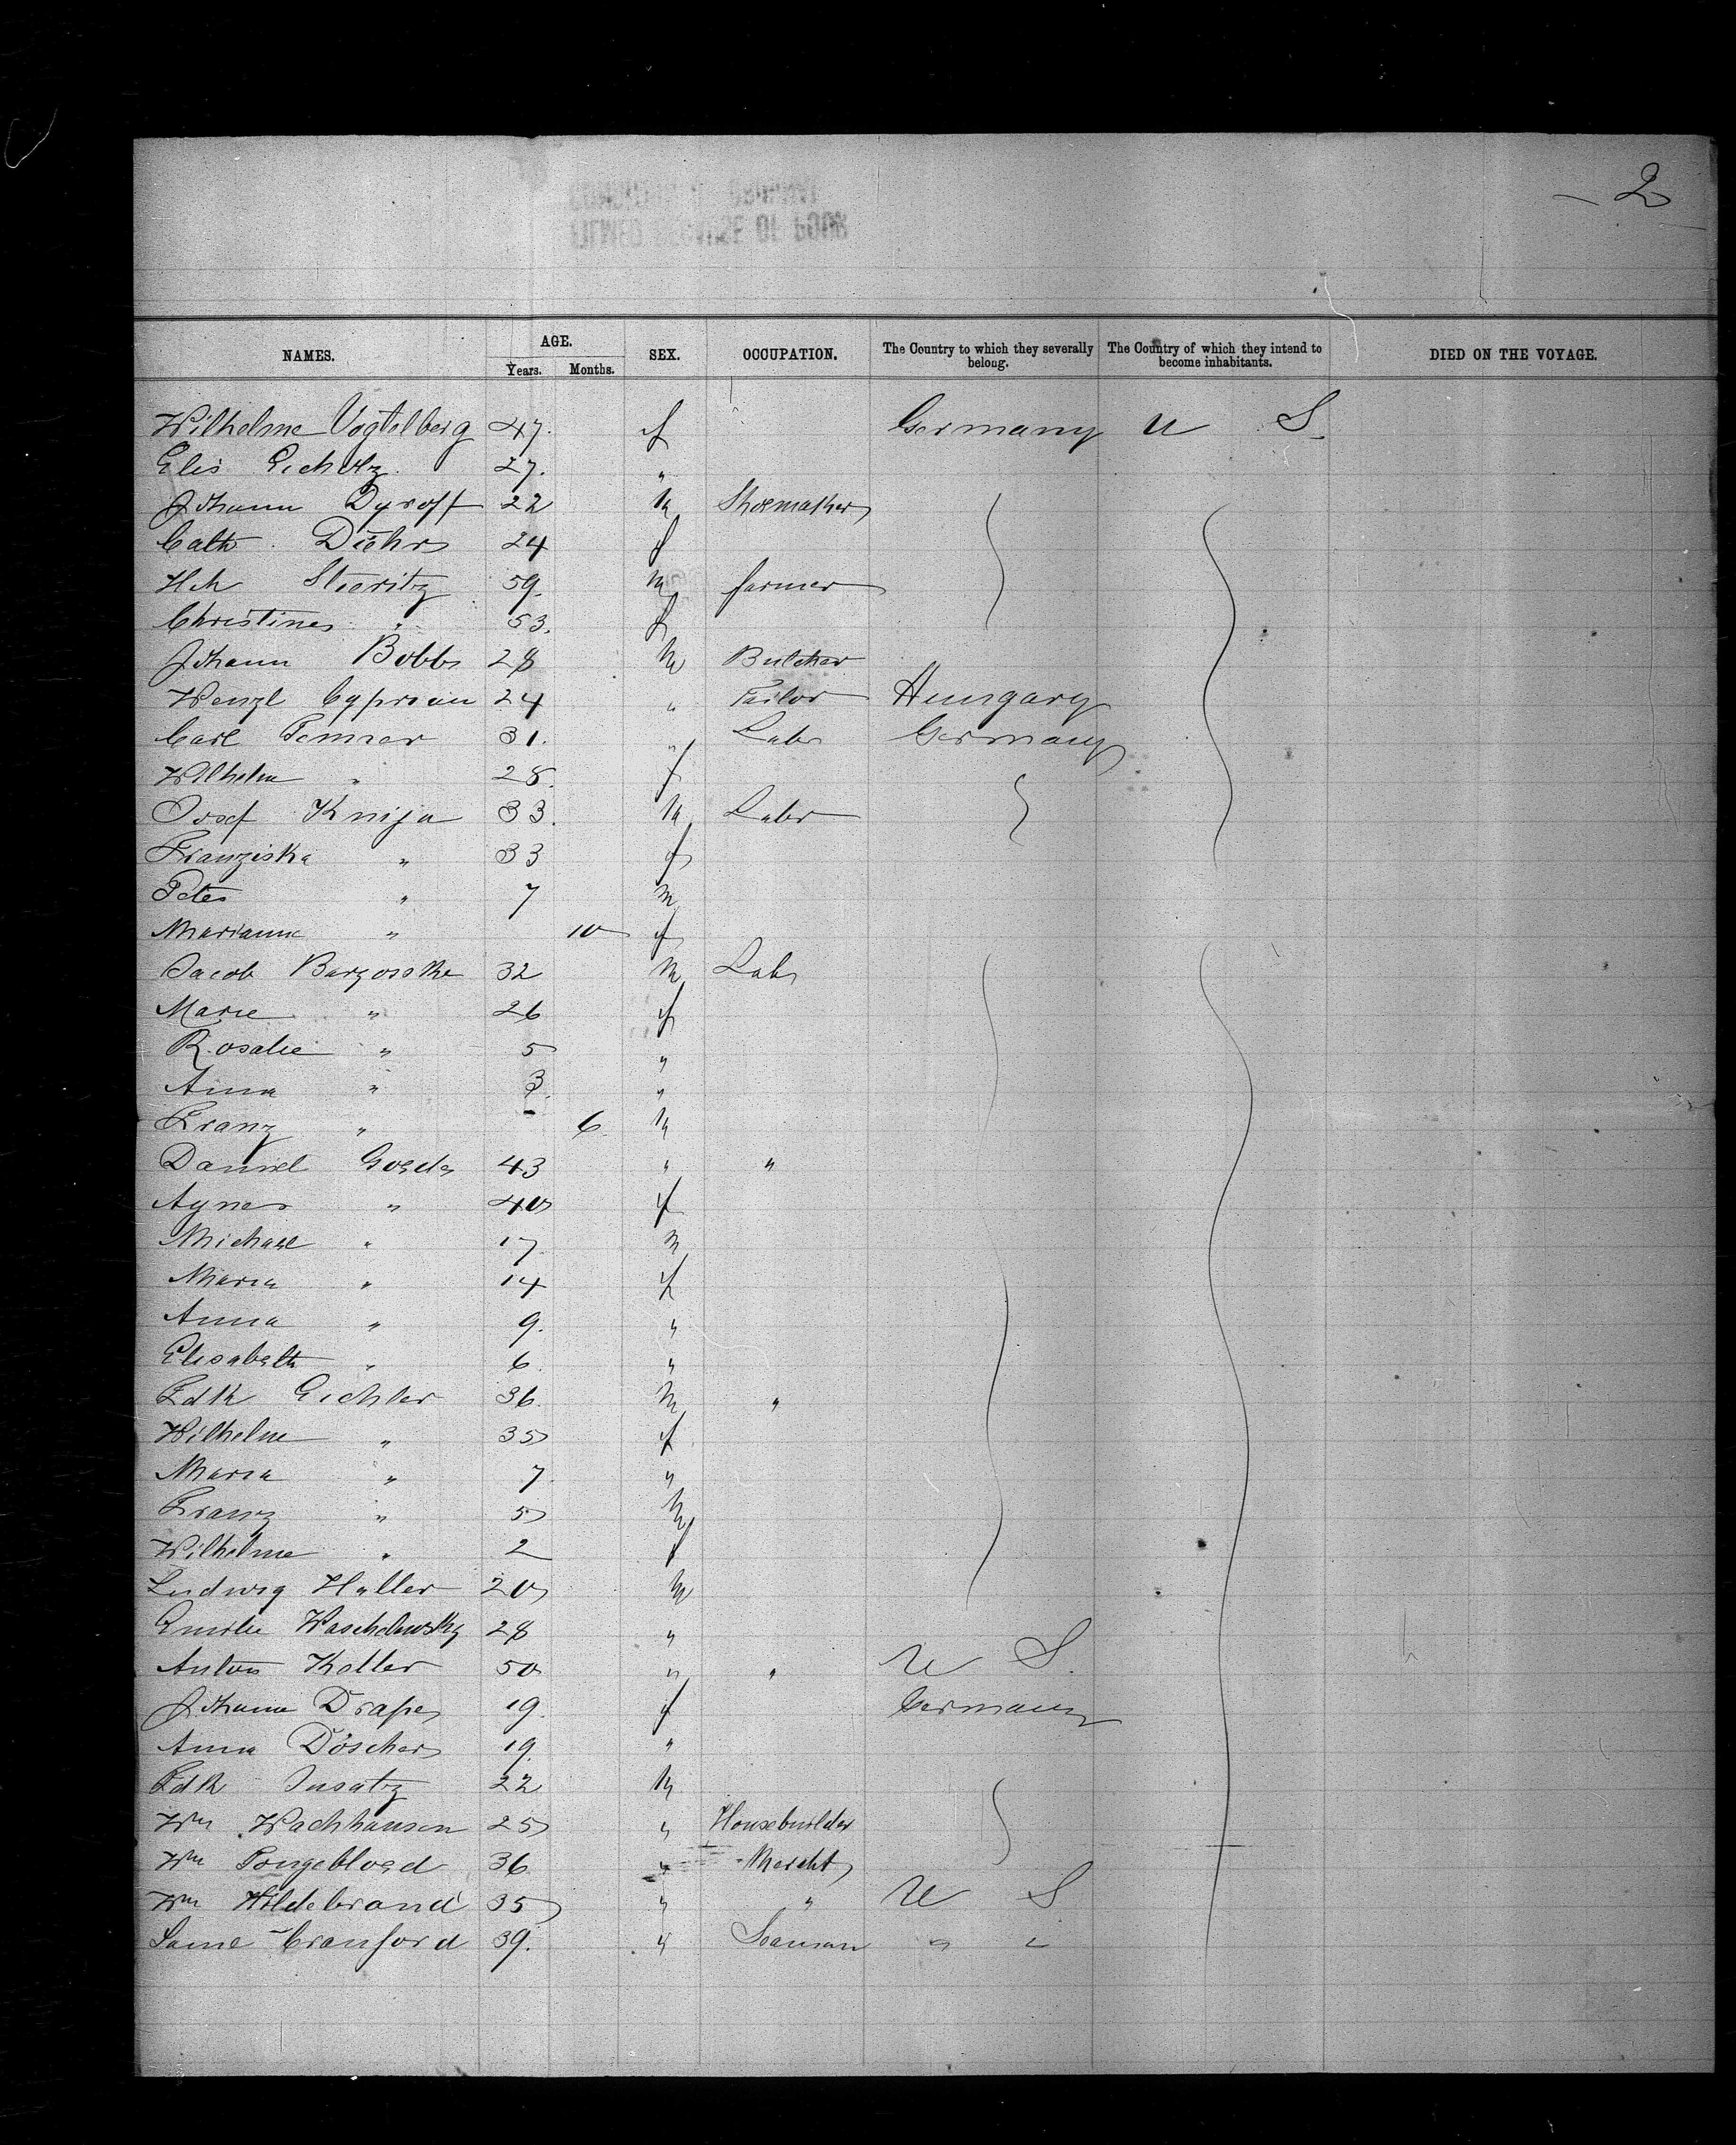 - 2
NAMES. AGE. SEX. OCCUPATION. The Country to which they severally belong. The Country of which they intend to become inhabitants. DIED ON THE VOYAGE.
Years. Months.
Wilhelme Vogtelberg 47. f Germany U S.
Elis Eicholz 27. "
Johann Dyroff 22 m Shoemaker
Cath. Diehrs 24 f
Hch Stieritz 59. m farmer
Christine " 53. f
Johann Bobbs 28 m Butcher
Wenzl Cyprian 24 " Tailor Hungary
Carl Temner 31. " Labr Germany
Wilhelm " 28. f
Josef Knija 33. m Labr
Franziska " 33 f
Peter " 7 m
Marianne " 10 f
Jacob Burzosske 32 m Lab
Marie " 26 f
Rosalie " 5 "
Anna " 3. "
Franz " 6 m
Daniel Goede 43 " "
Agnes " 40 f
Michael " 17 m
Maria " 14 f
Anna " 9. "
Elisabeth " 6 "
Fdk Eichler 36. m "
Wilhelme " 35 f
Maria " 7. "
Franz " 5 m
Wilhelme " 2 f
Ludwig Haller 20 m
Emilie Waschelewsky 28 "
Anton Koller 50 " " U S.
Johanna Drape 19. f Germany
Anna Döscher 19. "
Fdk Insatz 22 m
Wm Wachhausen 25 " Housebuilder
Wm Tongebloed 36 " Mercht
Wm Hildebrand 35 " " U S
Same Cranford 39. " Seaman " "